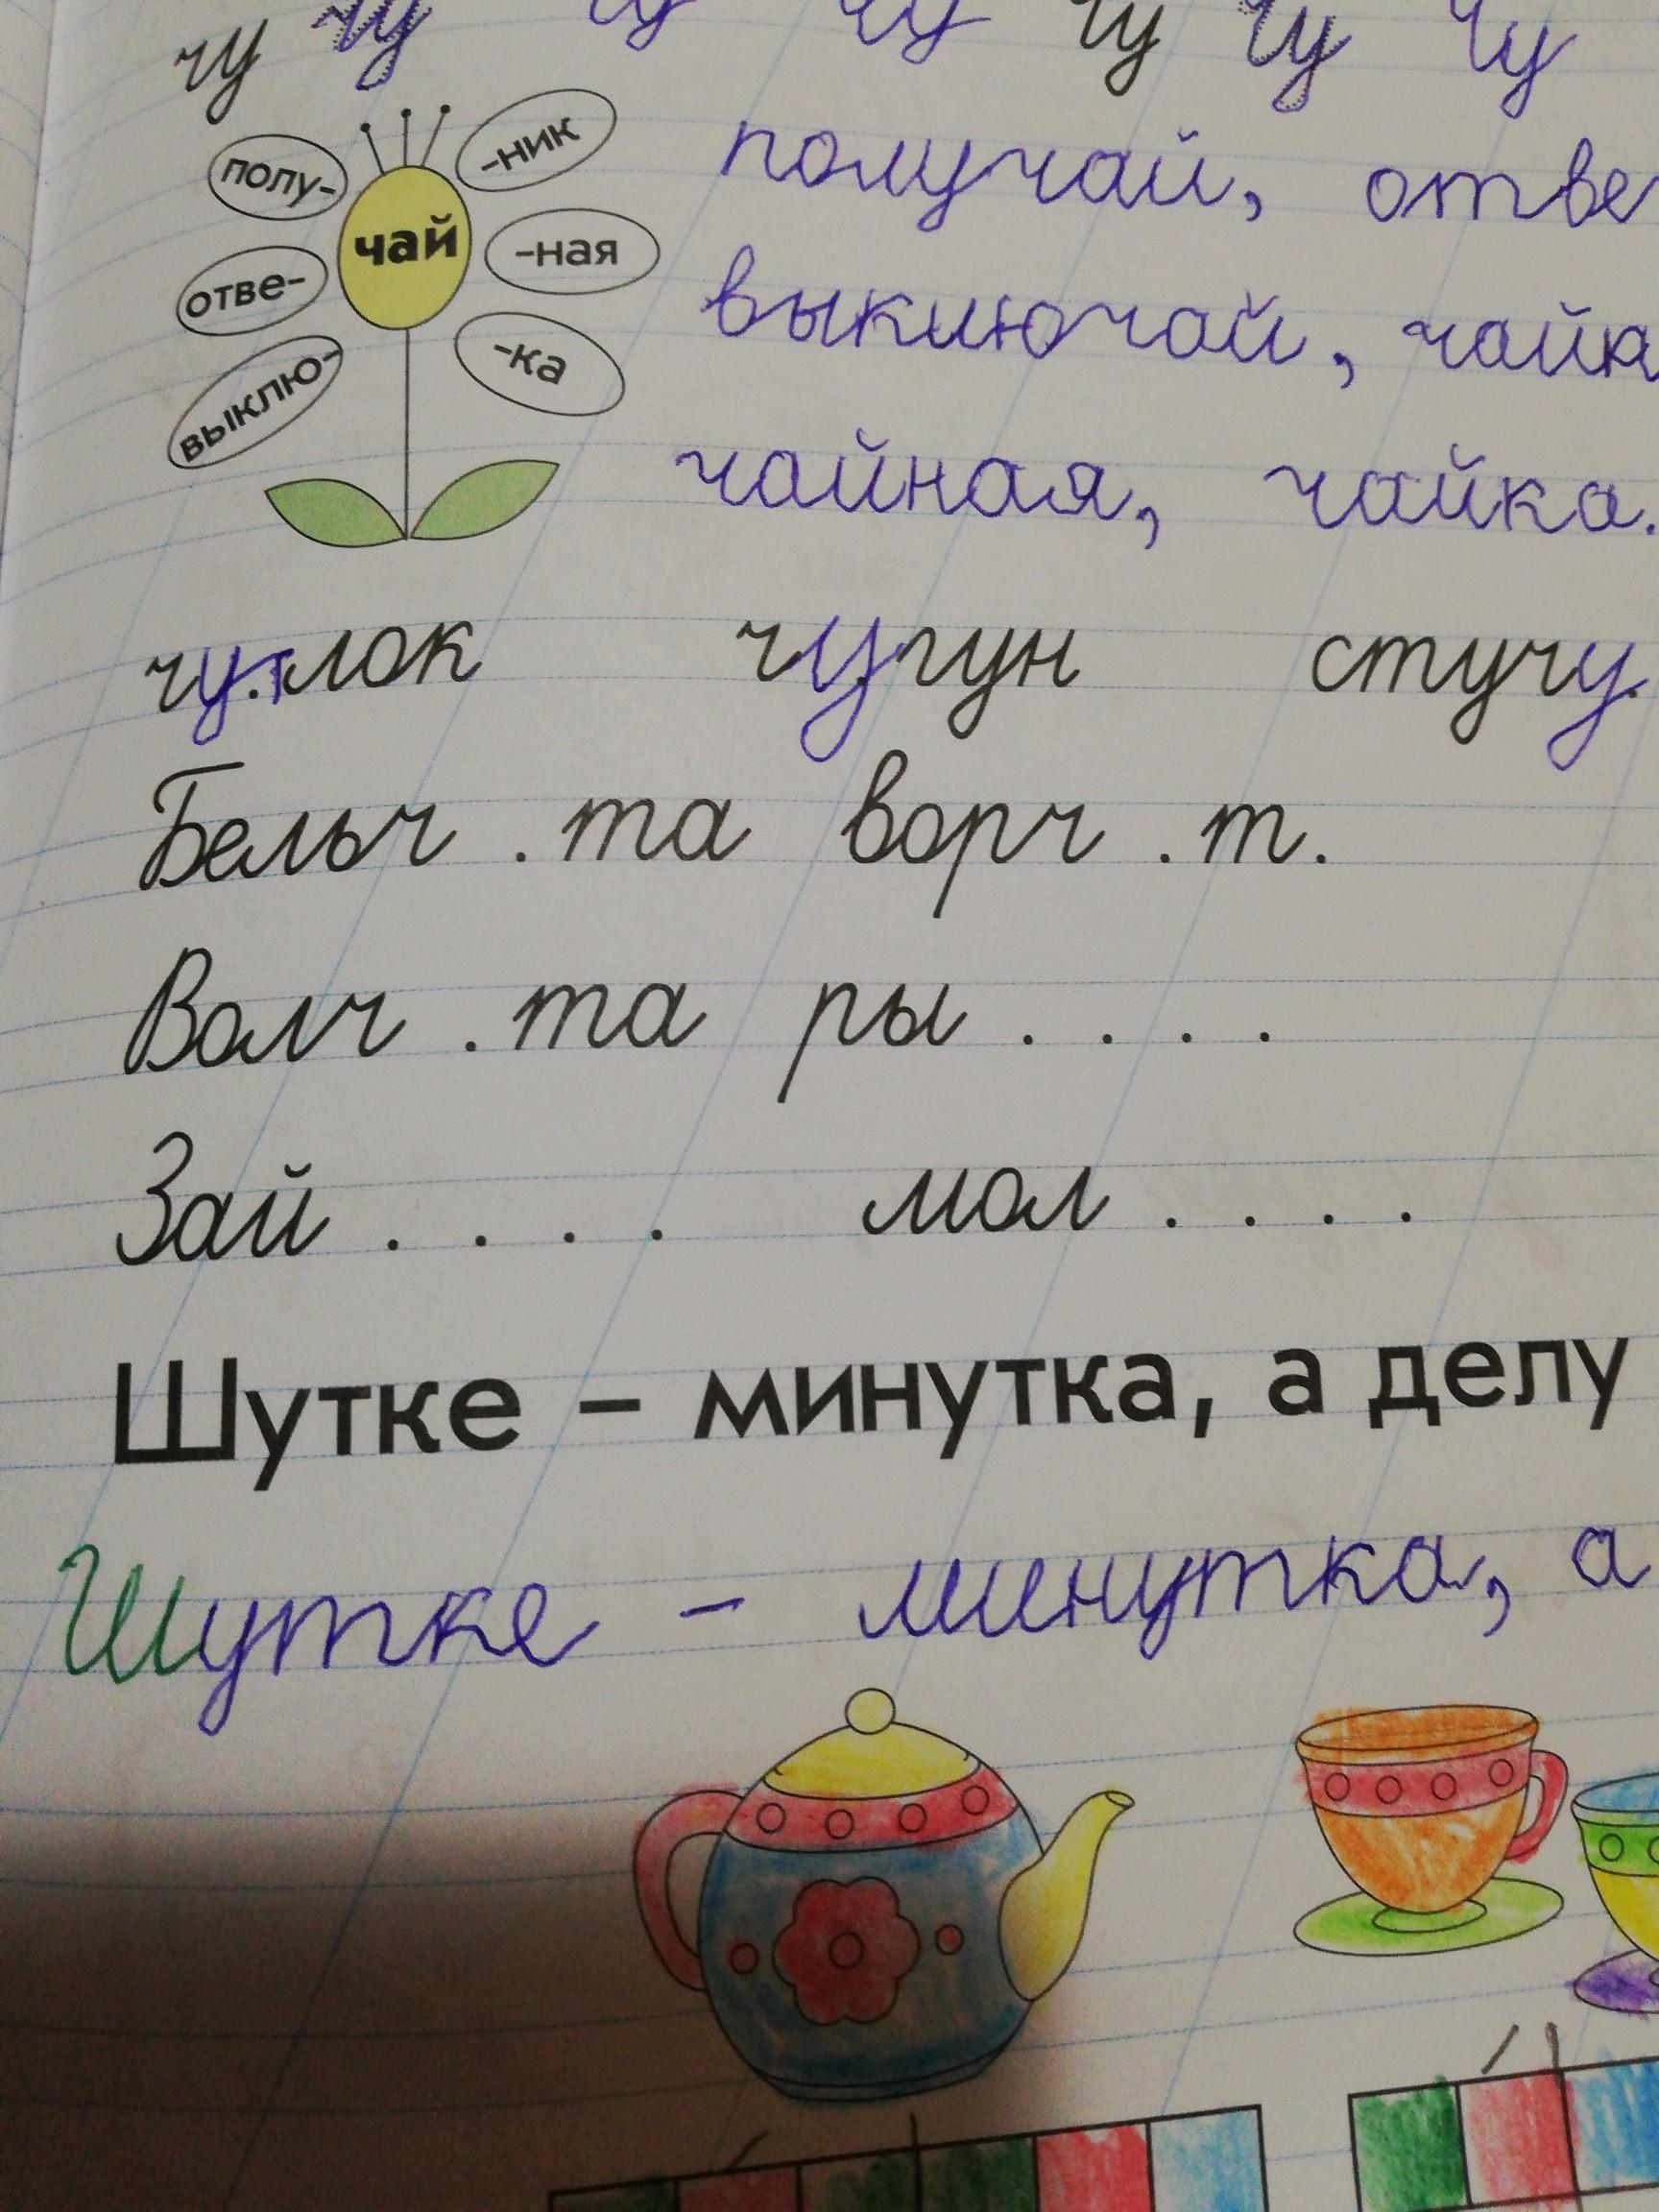 чу чу чу чу чу чу чу
полу-
-ник
чай
отве-
-ная
выклю-
-ка
получай, отве
выключай, чайн
чайная, чайка.
чу.лок чугун стучу.
Бельч . та ворч . т.
Волч . та ры . . . .
Зай . . . . мол . . . .
Шутке – минутка, а делу
Шутке – минутка, а